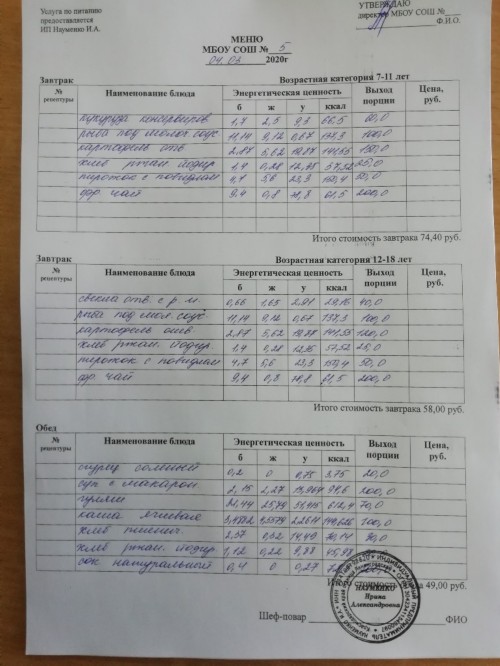 Услуга по питанию
предоставляется
ИП Науменко И.А.
УТВЕРЖДАЮ
директор МБОУ СОШ №
Ф.И.О.
МЕНЮ
МБОУ СОШ № 5
04.03 2020г
Завтрак Возрастная категория 7-11 лет
№ рецептуры Наименование блюда Энергетическая ценность Выход порции Цена, руб.
б ж у ккал
кукуруза консервиров. 1,7 2,5 9,3 66,5 60,0
рыба под молоч. соус 11,14 9,12 0,67 137,3 100,0
картофель отв. 2,87 5,62 150,0
хлеб ржан. йодир. 1,4 0,28 57,52 25,0
пирожок с повидлом 4,7 5,6 23,3 50,0
фр. чай 9,4 0,8 61,5 200,0
Итого стоимость завтрака 74,40 руб.
Завтрак Возрастная категория 12-18 лет
№ рецептуры Наименование блюда Энергетическая ценность Выход порции Цена, руб.
б ж у ккал
свекла отв. с р. м. 0,66 1,65 2,91 29,16 40,0
рыба под мол. соус 11,14 9,12 0,67 137,3 100,0
картофель отв. 2,87 5,62 120,0
хлеб ржан. йодир. 1,4 0,28 57,52 25,0
пирожок с повидлом 4,7 5,6 23,3 50,0
фр. чай 9,4 0,8 61,5 200,0
Итого стоимость завтрака 58,00 руб.
Обед
№ рецептуры Наименование блюда Энергетическая ценность Выход порции Цена, руб.
б ж у ккал
огурец соленый 0,2 0 0,75 3,75 20,0
суп с макарон. 2,15 2,27 200,0
гуляш 70,0
каша ячневая 100,0
хлеб пшенич. 2,37 14,49 30,0
хлеб ржан. йодир. 1,12 0,22 9,88
сок натуральный 0,4 0
Итого стоимость 49,00 руб.
Шеф-повар ФИО
НАУМЕНКО
Ирина
Александровна